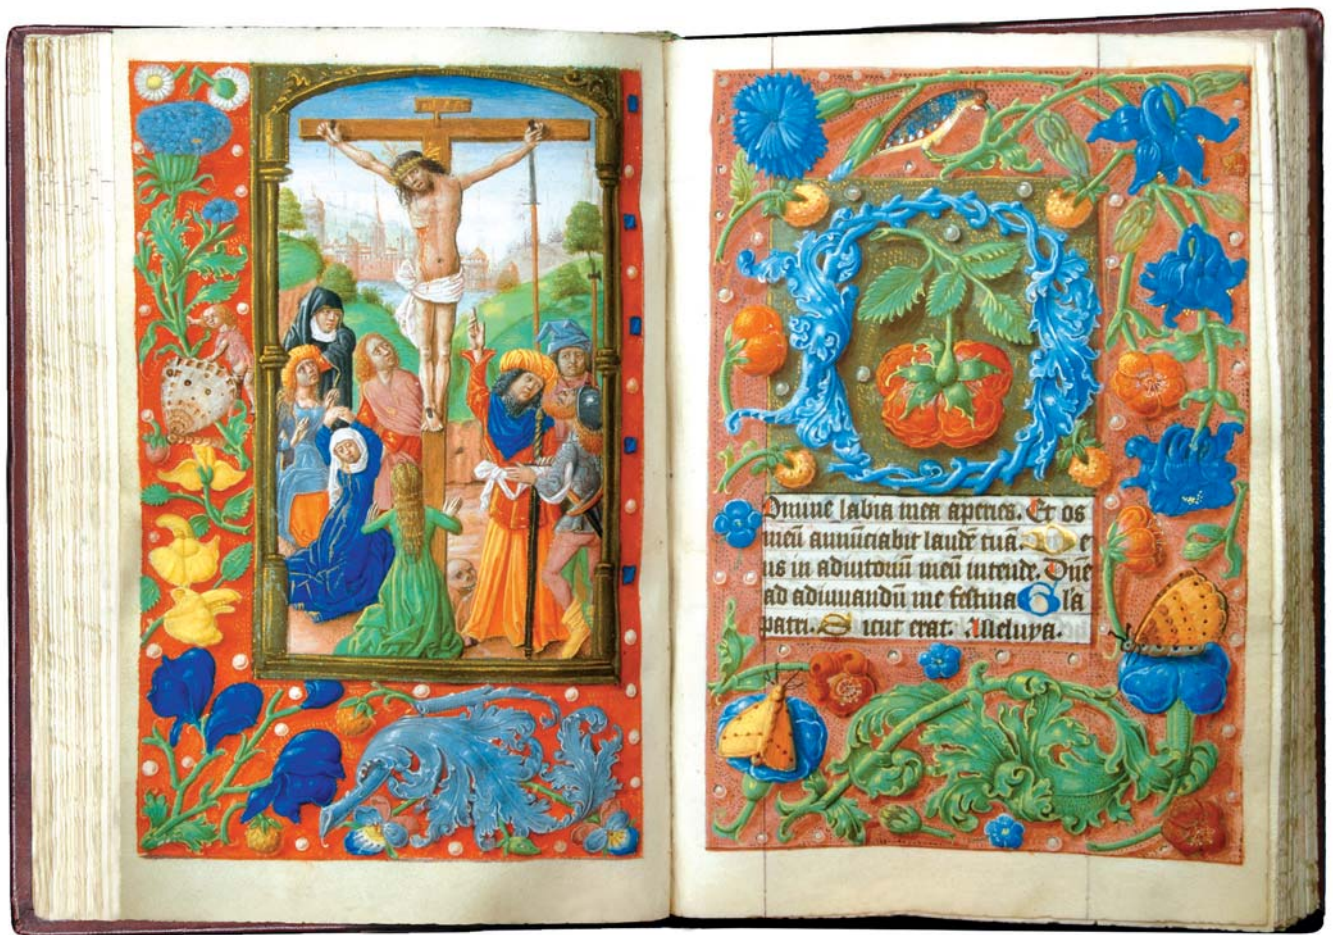 INRI
Domine labia mea aperies. Et os
meū annūciabit laudē tuā. De
us in adiutoriū meū intende. Dne
ad adiuuandū me festina Gla
patri. Sicut erat. Alleluya.